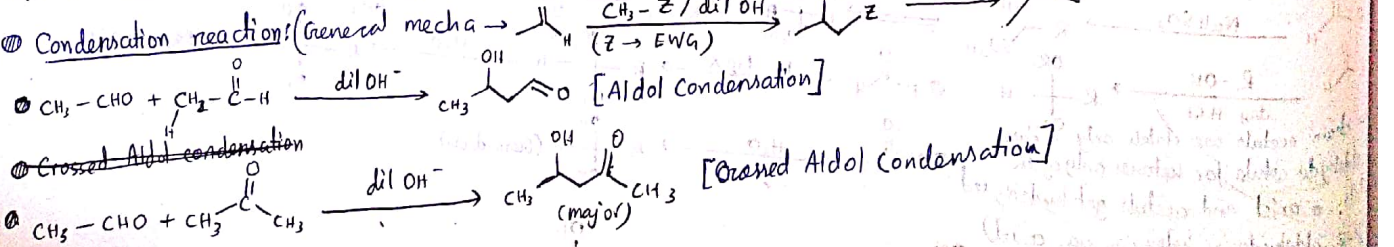 Condensation reaction:(General mecha → H CH₃ – Z / dil OH⁻ (Z → EWG) Z
CH₃ – CHO + CH₂ – C – H O H dil OH⁻ OH CH₃ O [Aldol Condensation]
Crossed Aldol condensation
CH₃ – CHO + CH₃ C O CH₃ dil OH⁻ OH O CH₃ CH₃ (major) [Crossed Aldol Condensation]